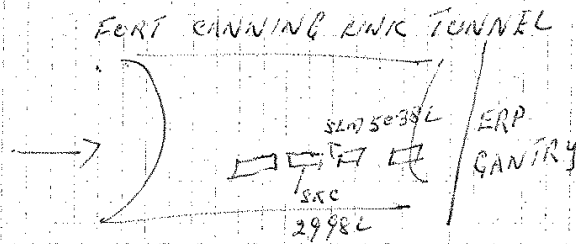 FORT CANNING LINK TUNNEL
SLM 5038L
ERP
GANTRY
SKC
2998L